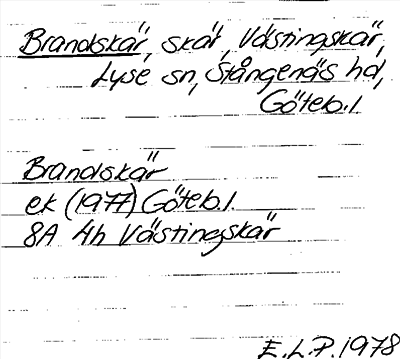 Brandskär, skär, Västingskär,
Lyse sn, Stångenäs hd,
Göteb.l.
Brandskär
ek (1977) Göteb.l.
8A 4h Västingskär
E.L.P. 1978